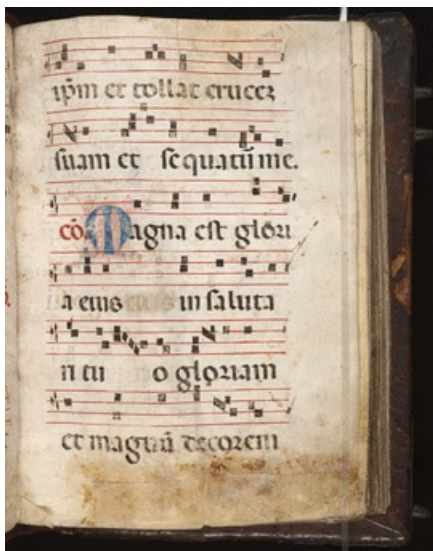 ip̄m et tollat crucez
suam et sequatur̄ me.
cō. Magna est glori
a eius in saluta
ri tu o gloriam
et magnū decorem